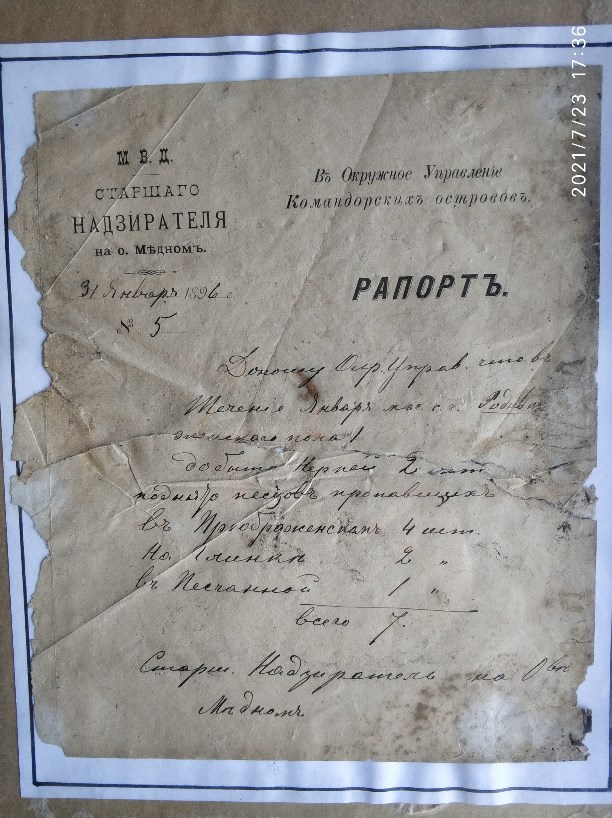 М. В. Д.
СТАРШАГО
НАДЗИРАТЕЛЯ
на о. Мѣдномъ.
31 Январь 1896 г.
№ 5
Въ Окружное Управленіе
Командорскихъ острововъ.
РАПОРТЪ.
Доношу Окр. Управ. что въ
течение Январь м-ца с. г. Родив
женского пола 1
добыто Нерпей 2 шт
поднято песцовъ пропавшихъ
въ Преображенскомъ 4 шт.
На Глинкѣ 2 "
въ Песчанной 1 "
всего 7.
Старш. Надзиратель на О-вѣ
Мѣдномъ
2021/7/23 17:36